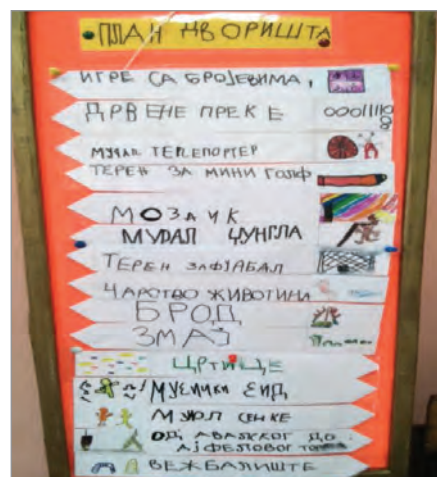 ПЛАН ДВОРИШТА
ИГРЕ СА БРОЈЕВИМА,
ДРВЕНЕ ПРЕКЕ
МУРАЛ ТЕЛЕПОРТЕР
ТЕРЕН ЗА МИНИ ГОЛФ
МОЗАИК
МУРАЛ ЏУНГЛА
ТЕРЕН ЗАФУДБАЛ
ЧАРСТВО ЖИВОТИНА
БРОД
ЗМАЈ
ЦРТИЩЕ
МУЗИЧКИ ЗИД
СЕНКЕ
ОД АВАЛСКОГ ДО
АЈФЕЛОВОГ
ВЕЖБАЛИШТЕ